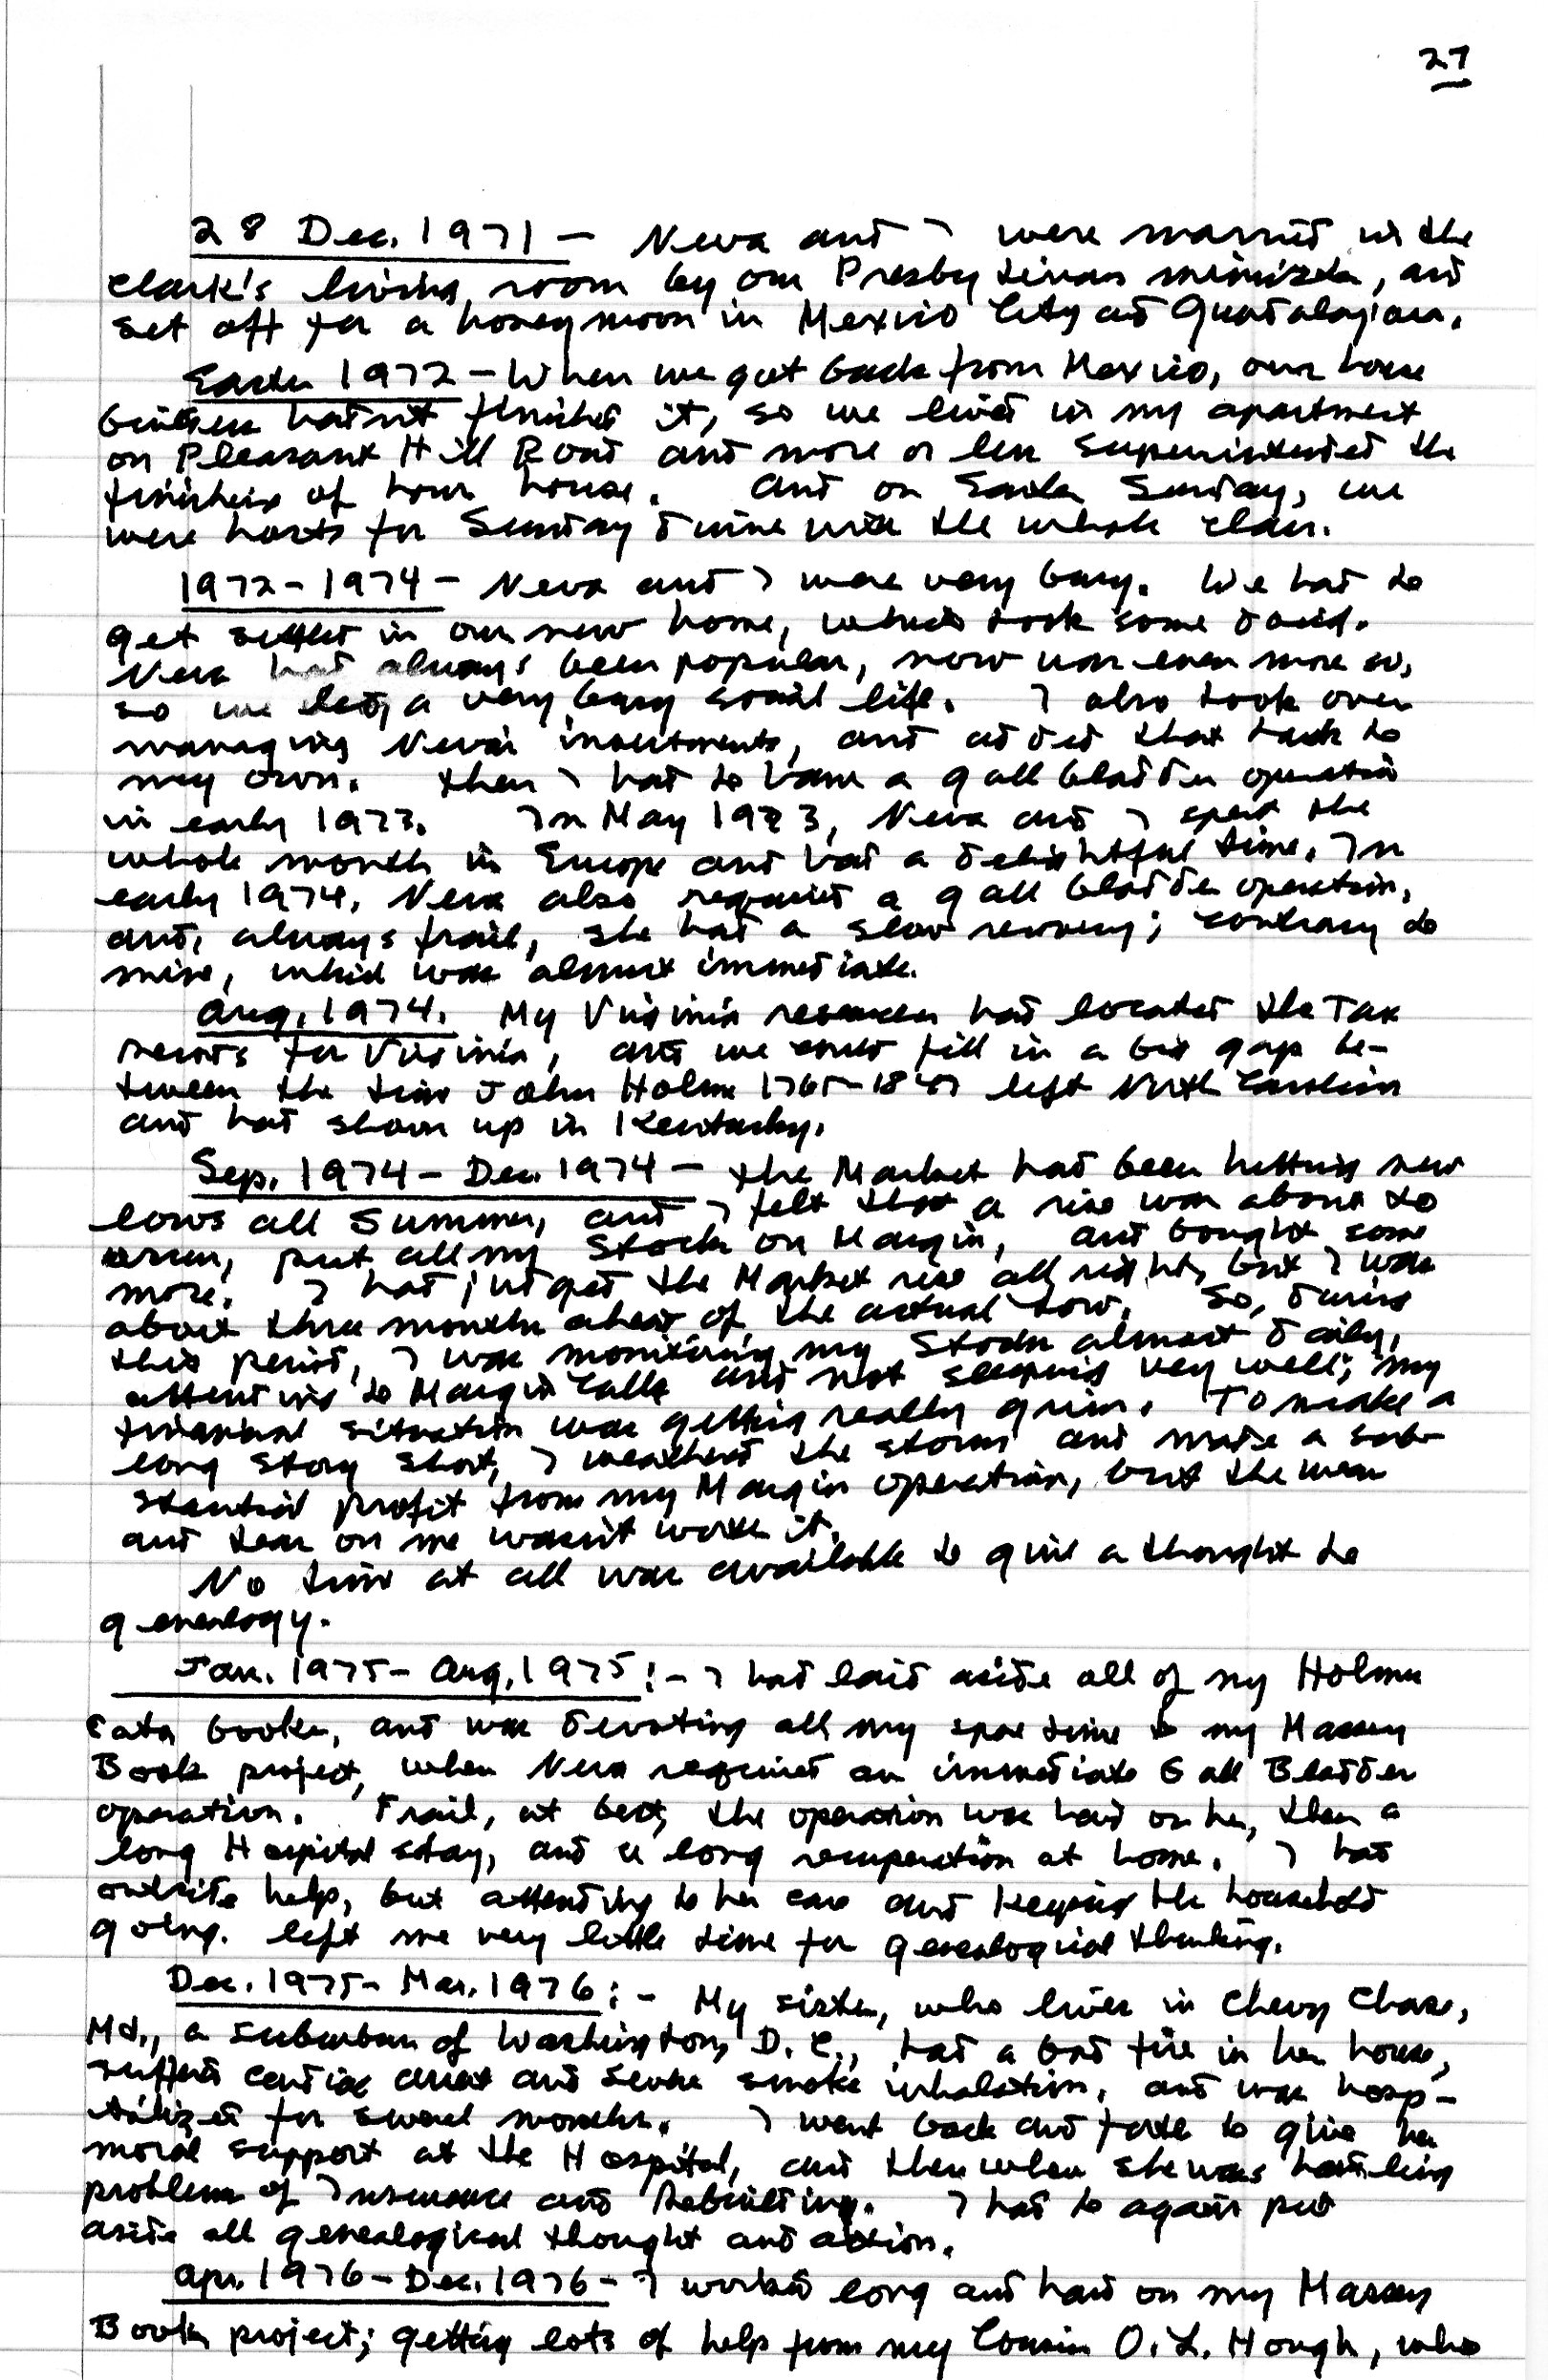 27
28 Dec. 1971 - Neva and I were married in the
Clark's living room by our Presbyterian minister, and
set off for a honeymoon in Mexico City and Guadalajara.
Easter 1972 - When we got back from Mexico, our house
builders hadn't finished it, so we lived in my apartment
on Pleasant Hill Road and more or less superintended the
finishing of our house. And on Easter Sunday, we
were hosts for Sunday dinner with the whole clan.
1972-1974 - Neva and I were very busy. We had to
get settled in our new home, which took some doing.
Neva had always been popular, now was even more so,
so we led a very busy social life. I also took over
managing Neva's investments, and added that task to
my own. Then I had to have a gall bladder operation
in early 1973. In May 1973, Neva and I spent the
whole month in Europe and had a delightful time. In
early 1974, Neva also required a gall bladder operation,
and, always frail, she had a slow recovery; contrary to
mine, which was almost immediate.
Aug. 1974. My Virginia researcher had located the Tax
records for Virginia, and we could fill in a big gap be-
tween the time John Holmes 1765-1847 left North Carolina
and had shown up in Kentucky.
Sep. 1974 - Dec. 1974 - The Market had been hitting new
lows all Summer, and I felt that a rise was about to
occur, put all my Stocks on Margin, and bought some
more. I had judged the Market rise all right, but I was
about three months ahead of the actual low. So, during
this period, I was monitoring my Stocks almost daily,
attending to Margin Calls and not sleeping very well; my
financial situation was getting really grim. To make a
long story short, I weathered the storm and made a sub-
stantial profit from my Margin operation, but the wear
and tear on me wasn't worth it.
No time at all was available to give a thought to
genealogy.
Jan. 1975 - Aug. 1975:- I had laid aside all of my Holmes
data books, and was devoting all my spare time to my Massey
Book project, when Neva required an immediate Gall Bladder
operation. Frail, at best, the operation was hard on her, then a
long Hospital stay, and a long recuperation at home. I had
outside help, but attending to her care and keeping the household
going. left me very little time for genealogical thinking.
Dec. 1975 - Mar. 1976:- My sister, who lives in Chevy Chase,
Md., a suburban of Washington, D.C., had a bad fire in her house,
suffered cardiac arrest and severe smoke inhalation, and was hosp-
italized for several months. I went back and forth to give her
moral support at the Hospital, and then when she was handling
problems of Insurance and Rebuilding. I had to again put
aside all genealogical thought and action.
Apr. 1976 - Dec. 1976 - I worked long and hard on my Massey
Book project; getting lots of help from my Cousin O.L. Hough, who